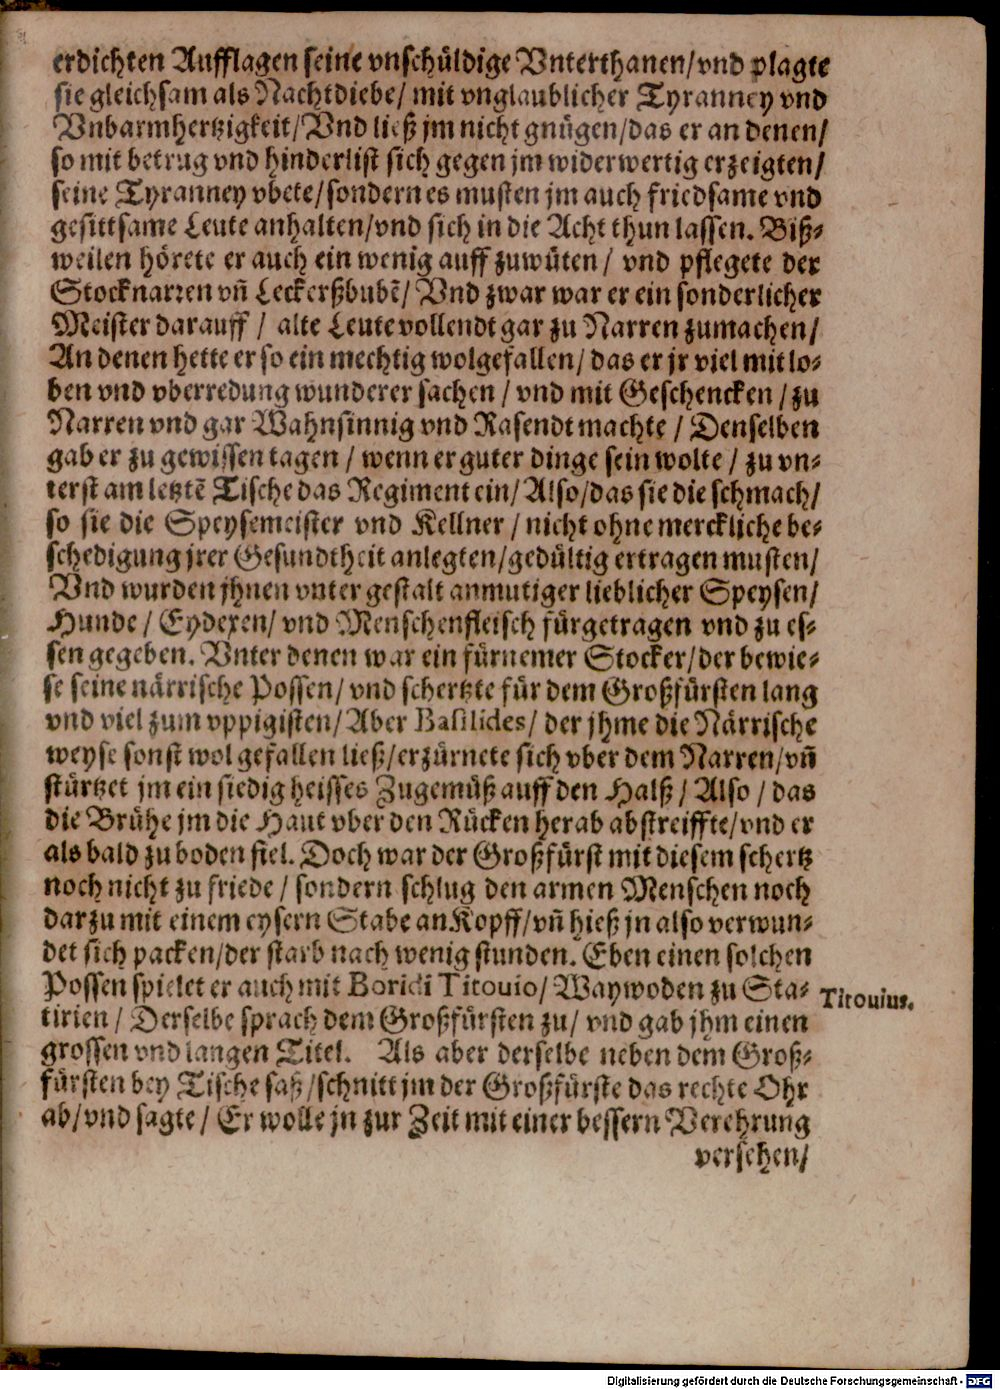 erdichten Aufflagen seine vnschüldige Vnterthanen/vnd plagte
sie gleichsam als Nachtdiebe/ mit vnglaublicher Tyranney vnd
Vnbarmhertzigkeit/Vnd ließ jm nicht gnügen/das er an denen/
so mit betrug vnd hinderlist sich gegen jm widerwertig erzeigten/
seine Tyranney vbete/sondern es musten jm auch friedsame vnd
gesittsame Leute anhalten/vnd sich in die Acht thun lassen. Biß-
weilen hörete er auch ein wenig auff zuwüten/ vnd pflegete der
Stocknarren vñ Leckerßbubē/ Vnd zwar war er ein sonderlicher
Meister darauff/ alte Leute vollendt gar zu Narren zumachen/
An denen hette er so ein mechtig wolgefallen/ das er jr viel mit lo-
ben vnd vberredung wunderer sachen/ vnd mit Geschencken/ zu
Narren vnd gar Wahnsinnig vnd Rasendt machte/ Denselben
gab er zu gewissen tagen/ wenn er guter dinge sein wolte/ zu vn-
terst am letztē Tische das Regiment ein/ Also/das sie die schmach/
so sie die Speysemeister vnd Kellner/ nicht ohne merckliche be-
schedigung jrer Gesundtheit anlegten/gedültig ertragen musten/
Vnd wurden jhnen vnter gestalt anmutiger lieblicher Speysen/
Hunde/ Eydexen/ vnd Menschenfleisch fürgetragen vnd zu es-
sen gegeben. Vnter denen war ein fürnemer Stocker/der bewie-
se seine närrische Possen/ vnd schertzte für dem Großfürsten lang
vnd viel zum vppigisten/Aber Basilides/ der jhme die Närrische
weyse sonst wol gefallen ließ/erzürnete sich vber dem Narren/vñ
stürtzet jm ein siedig heisses Zugemüß auff den Halß/ Also/ das
die Brühe jm die Haut vber den Rücken herab abstreiffte/vnd er
als bald zu boden fiel. Doch war der Großfürst mit diesem schertz
noch nicht zu friede/ sondern schlug den armen Menschen noch
darzu mit einem eysern Stabe an Kopff/vñ hieß jn also verwun-
det sich packen/der starb nach wenig stunden. Eben einen solchen
Possen spielet er auch mit Boridi Titouio/ Waywoden zu Sta-
Titouius.
tirien/ Derselbe sprach dem Großfürsten zu/ vnd gab jhm einen
grossen vnd langen Titel. Als aber derselbe neben dem Groß-
fürsten bey Tische saß/schnitt jm der Großfürste das rechte Ohr
ab/vnd sagte/ Er wolle jn zur Zeit mit einer bessern Verehrung
versehen/
Digitalisierung gefördert durch die Deutsche Forschungsgemeinschaft - DFG